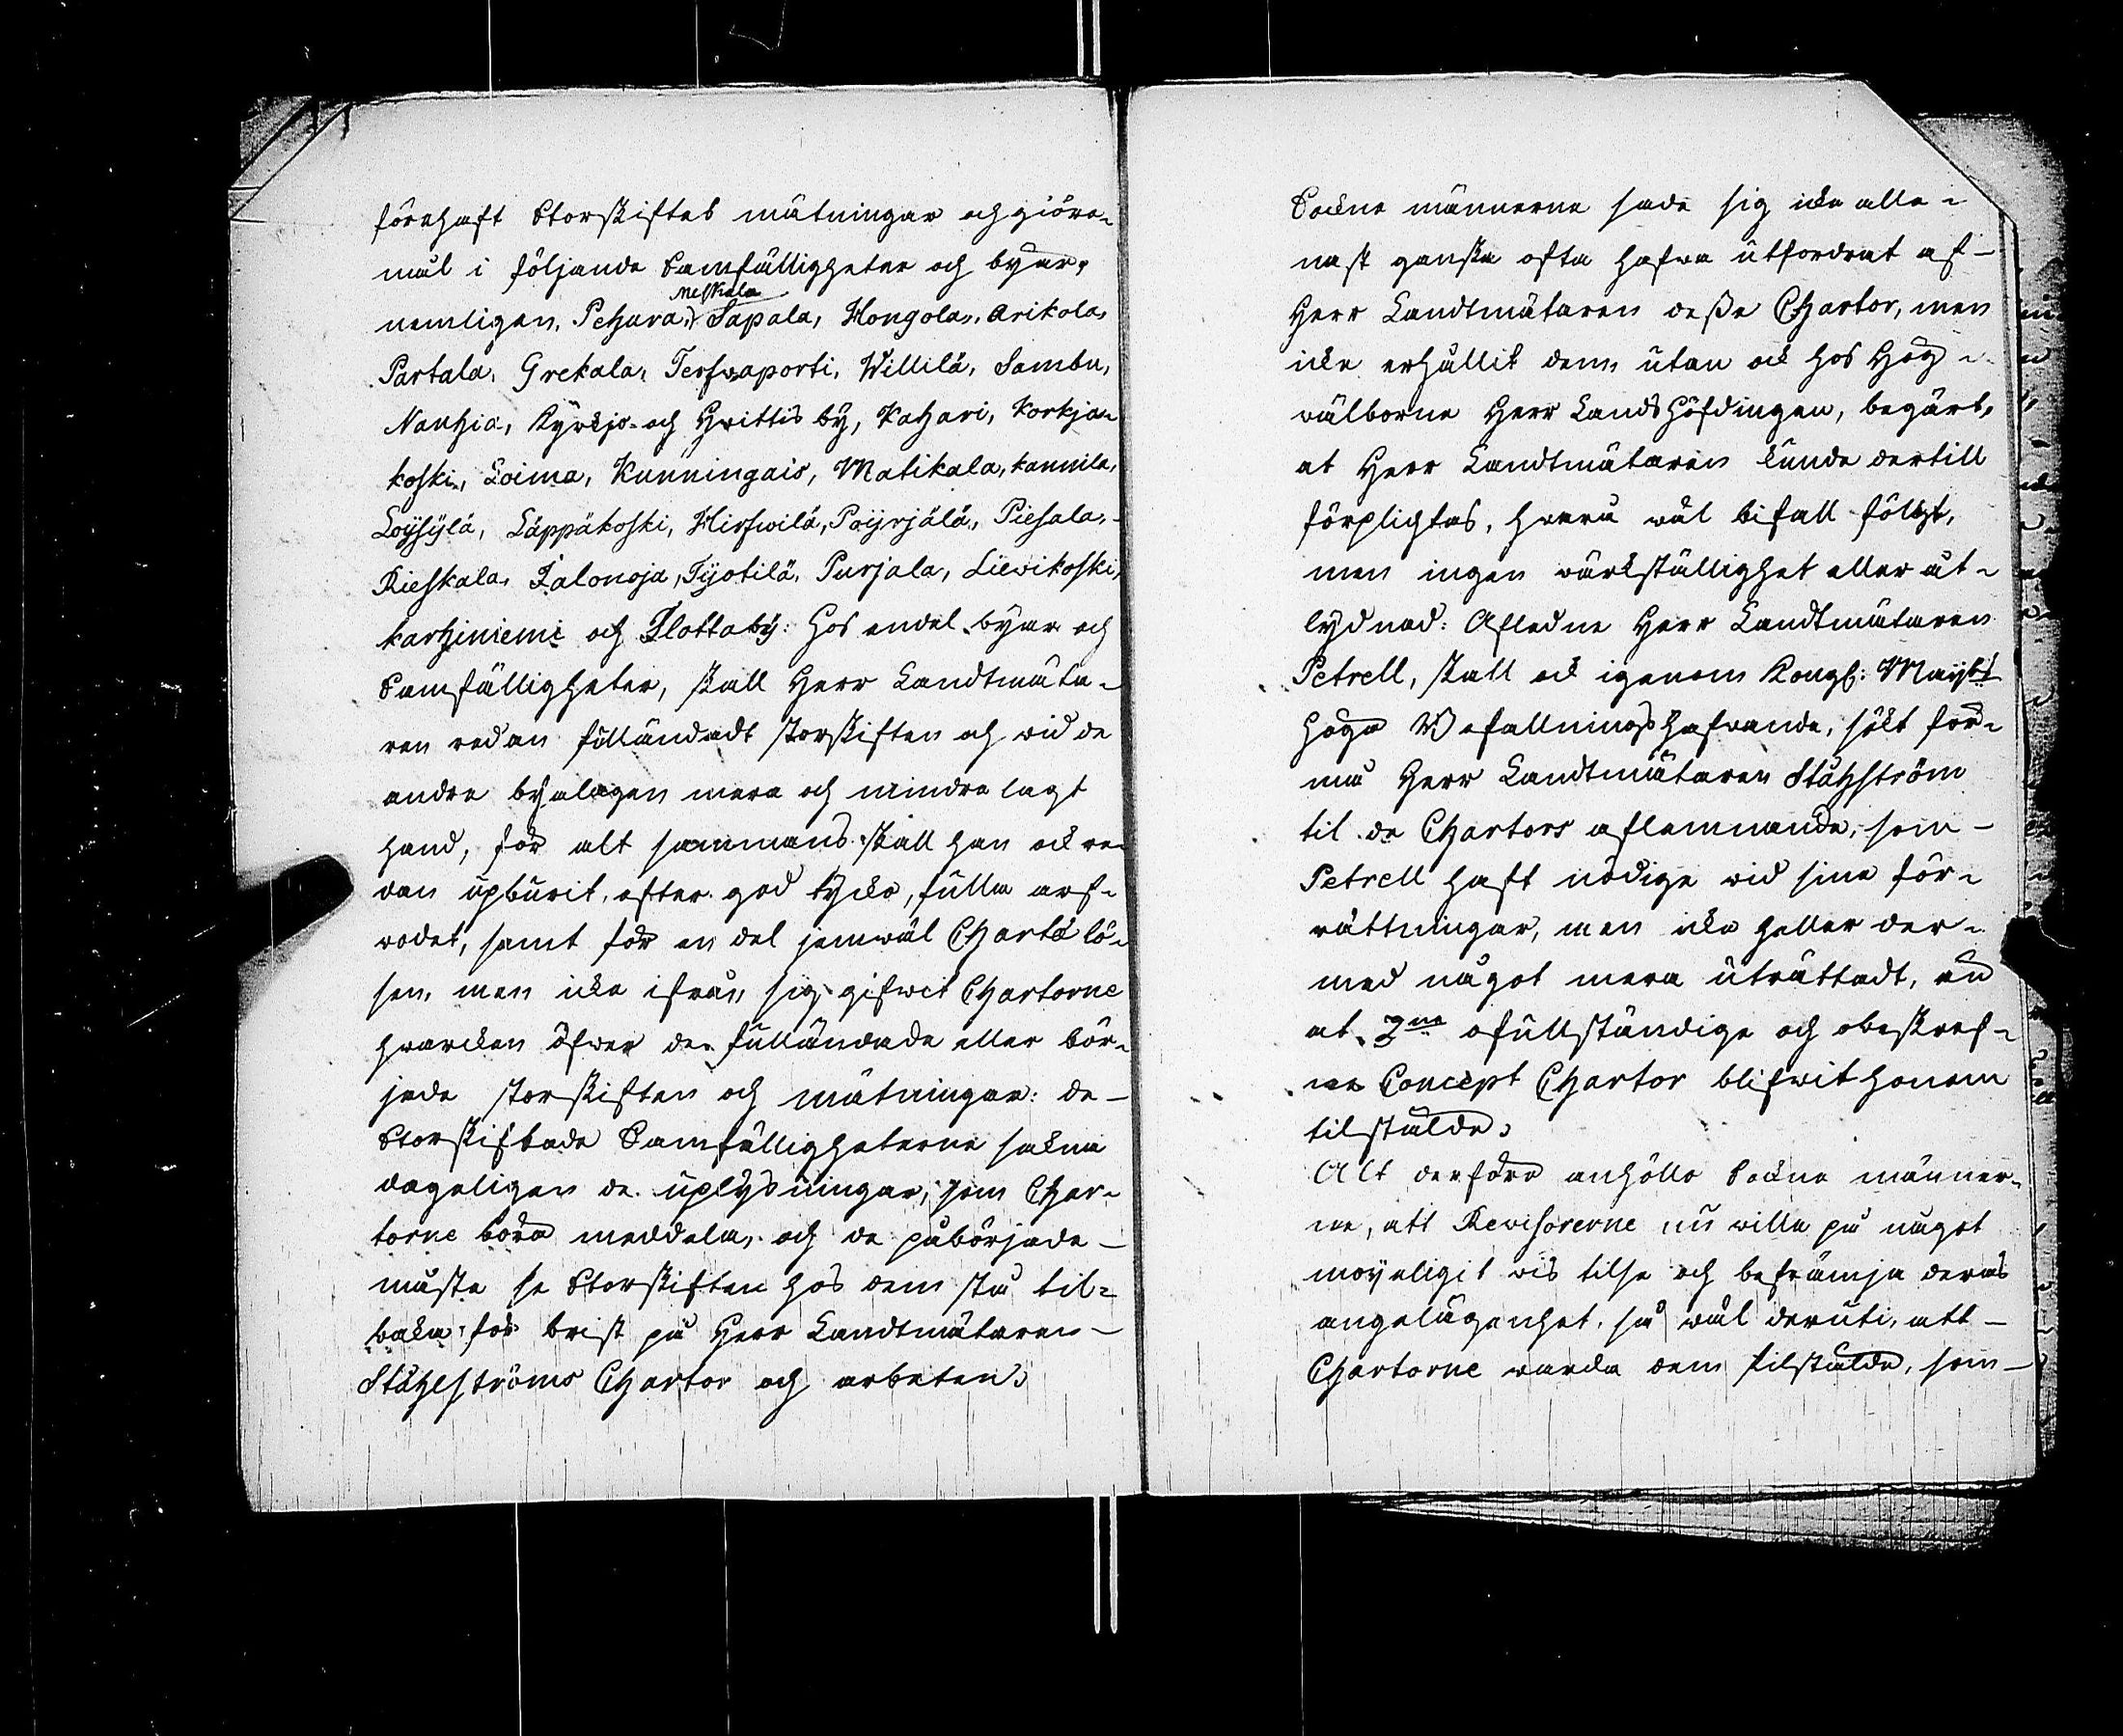 förehaft Storskiftes mätningar och giöre-
mål i följande Samfälligheter och byar,
Meskala
nemligen, Pehura, Sapala, Hongola, Arikola,
Partala, Grekala, Terfwaporti, Willilä, Sambu,
Nanhia, Kyrkjo- och Hvittis by, Kahari, Korkja-
koski, Loima, Kunningais, Matikala, Kannila,
Löysylä, Läppäkoski, Hirfwilä, Pöyrjälä, Piesala,
Rieskala, Jalonoja, Tyotilä, Purjala, Liewikoski,
Karhiniemi och Slottaby: hos endel byar och
Samfälligheter, skall Herr Landtmäta-
ren redan fulländadt storskiften och wid de
andre byalagen mera och mindre lagt
hand, för alt sammans skall han ock re-
dan upburit, efter god tycko, fulla arf-
wodet, samt för en del jemwäl Charte lö-
sen, men icke ifrån sig gifwet Chartorne
hwarcken öfwer de fulländade eller bör-
jade storskiften och mätningar: de
Storskiftade Samfälligheterne sakna
dageligen de uplysningar, som Char-
torne böra meddela, och de påbörjade
måste se Storskiften hos dem stå til-
baka för brist på Herr Landtmätaren
Ståhlströms Chartor och arbeten.
Sockne männerne sade sig icke alle-
nast ganska ofta hafwa utfordrat af
Herr Landtmätaren desse Chartor, men
icke erhållit dem, utan ock hos Hög-
wälborne Herr Landshöfdingen, begärt,
at Herr Landtmätaren kunde dertill
förplichtas, hwaru wäl bifall följgt,
men ingen wärkställighet eller åt-
lydnad: Afledne Herr Landtmätaren
Petrell, skall ock igenom Kongl: Mayts
höga Befallningshafwande, sökt för-
må Herr Landtmätaren Ståhlström
til de Chartors aflemnande, som
Petrell haft nödige wid sine för-
rättningar, men icke heller der-
med något mera uträttadt, än
at 2ne ofullständige och obeskref-
ne Concept Chartor blifwit honom
tilstälde.
Alt derföre anhöllo Sockne männer-
ne, att Rewisorerne nu wille på något
moyeligit wis tilse och befrämja deras
angelägenhet, så wäl deruti, att
Chartorne warda dem tilstälde, som